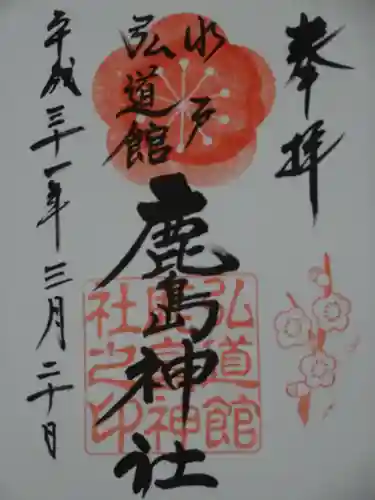 奉拝
水戸
弘道館
鹿島神社
平成三十一年三月二十日
弘道館
鹿島神
社之印